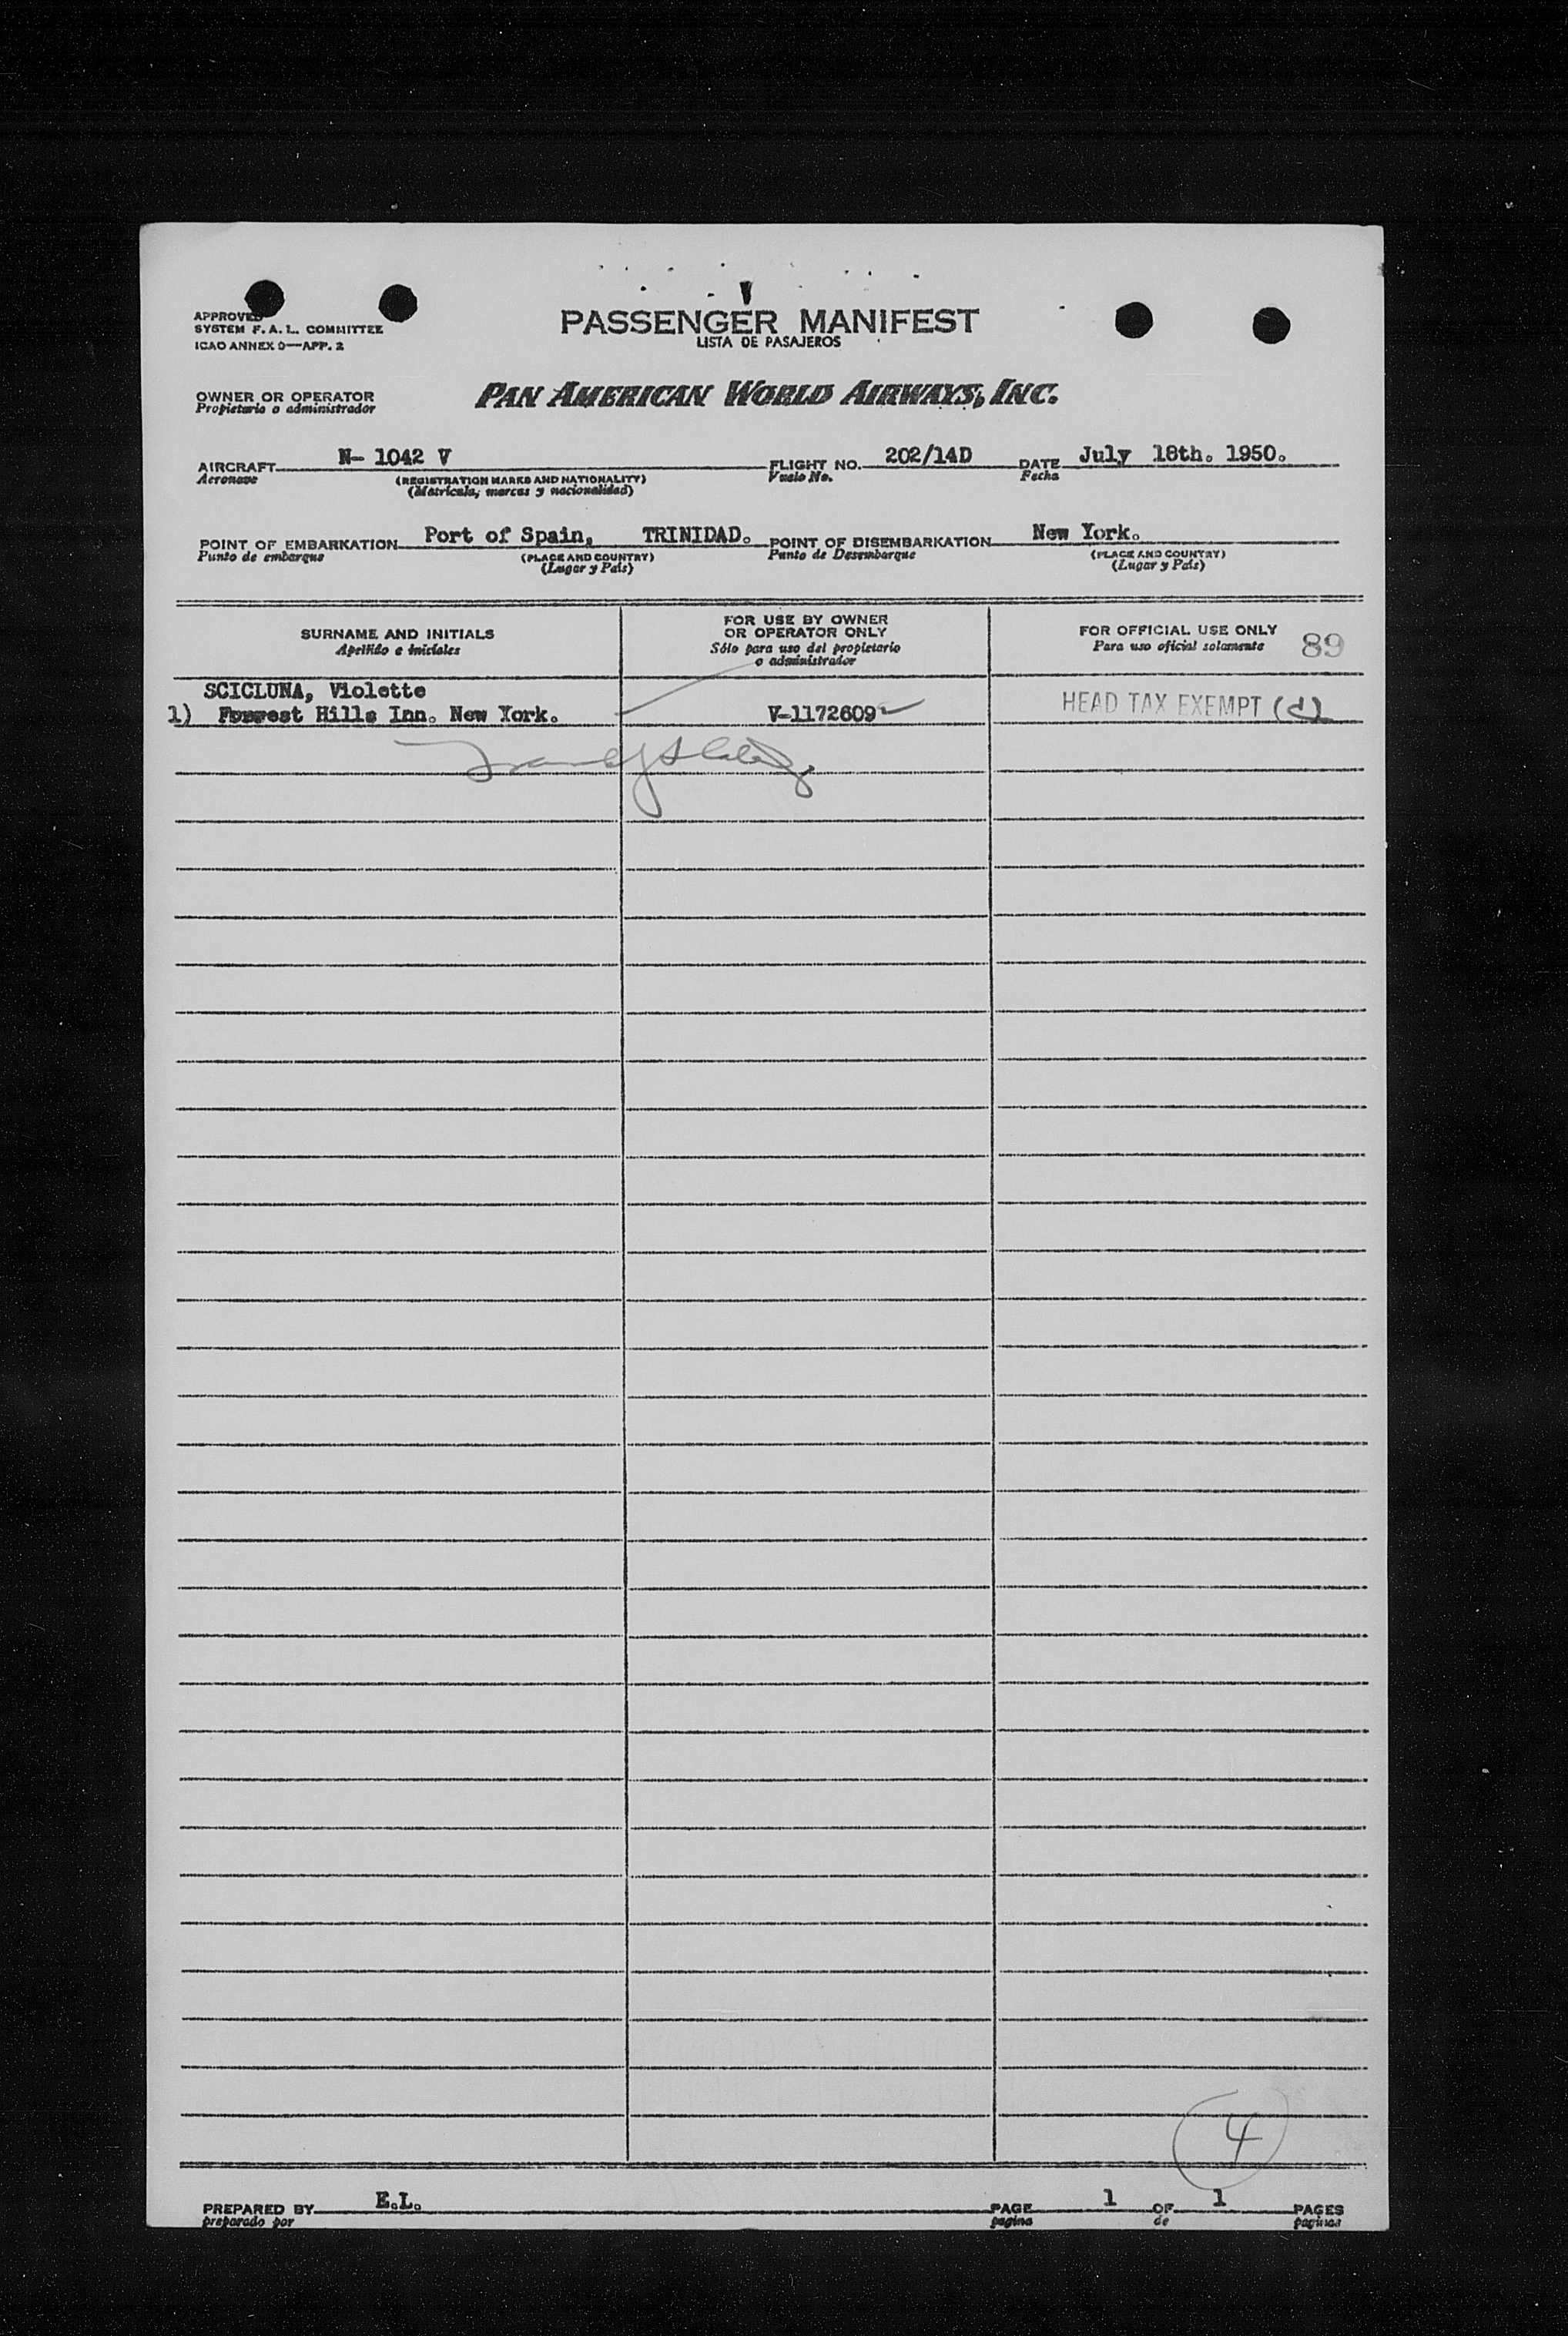 APPROVED
SYSTEM F.A.L. COMMITTEE
ICAO ANNEX 9—APP. 2
PASSENGER MANIFEST
LISTA DE PASAJEROS
OWNER OR OPERATOR
Propietario o administrador
PAN AMERICAN WORLD AIRWAYS, INC.
AIRCRAFT N- 1042 V FLIGHT NO. 202/14D DATE July 18th. 1950.
Aeronave (REGISTRATION MARKS AND NATIONALITY) Vuelo No. Fecha
(Matricula, marcas y nacionalidad)
POINT OF EMBARKATION Port of Spain, TRINIDAD. POINT OF DISEMBARKATION New York.
Punto de embarque (PLACE AND COUNTRY) Punto de Desembarque (PLACE AND COUNTRY)
(Lugar y País) (Lugar y País)
SURNAME AND INITIALS
Apellido e iniciales
FOR USE BY OWNER
OR OPERATOR ONLY
Sólo para uso del propietario
o administrador
FOR OFFICIAL USE ONLY
Para uso oficial solamente
89
SCICLUNA, Violette
1) Forrest Hills Inn. New York. V-1172609 HEAD TAX EXEMPT (d)
4
PREPARED BY E.L. PAGE 1 OF 1 PAGES
preparado por pagina de paginas